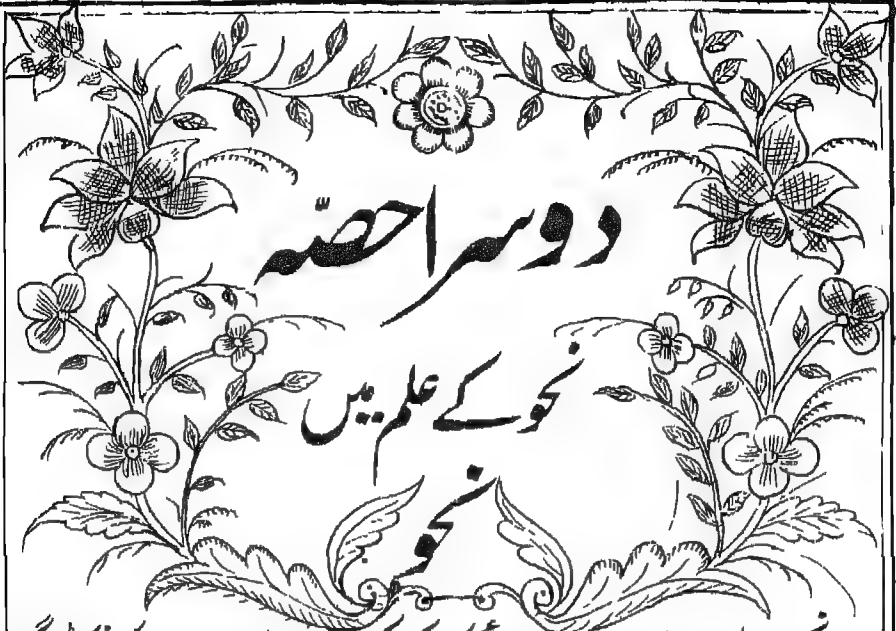 دوسرا حصّہ
نحو کے علم میں
نحو